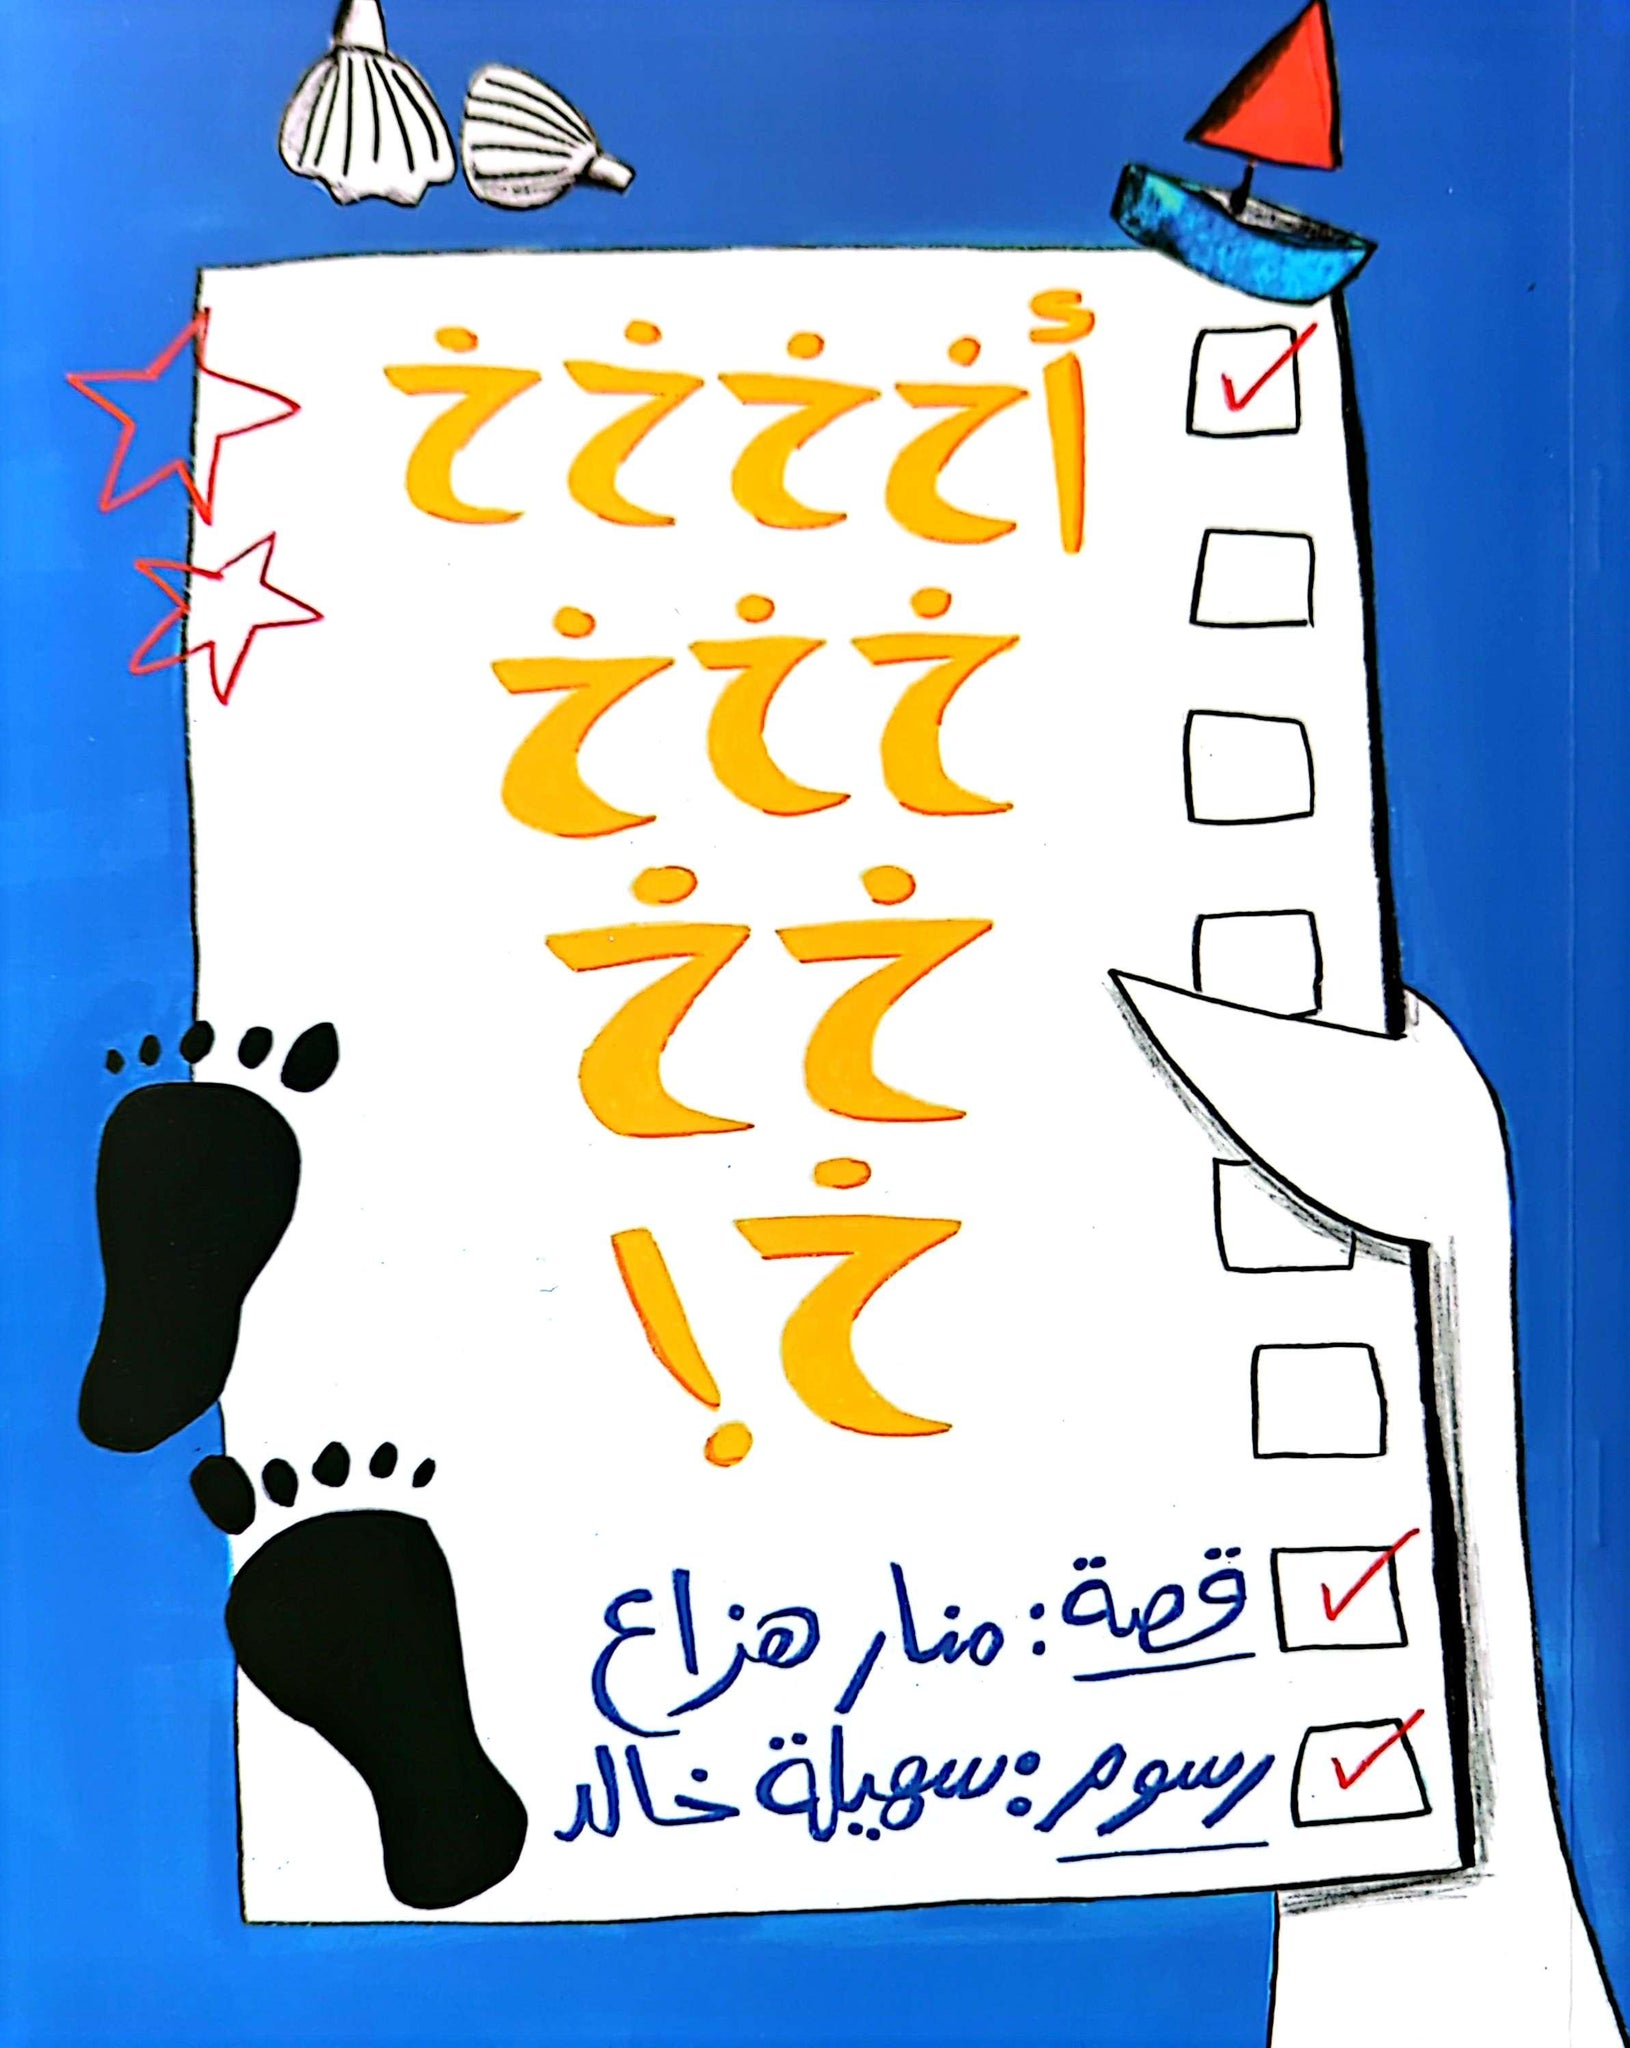 أخخخخ
خخخ
خخ
خ!
قصة: منار هزاع
رسوم: سهيلة خالد